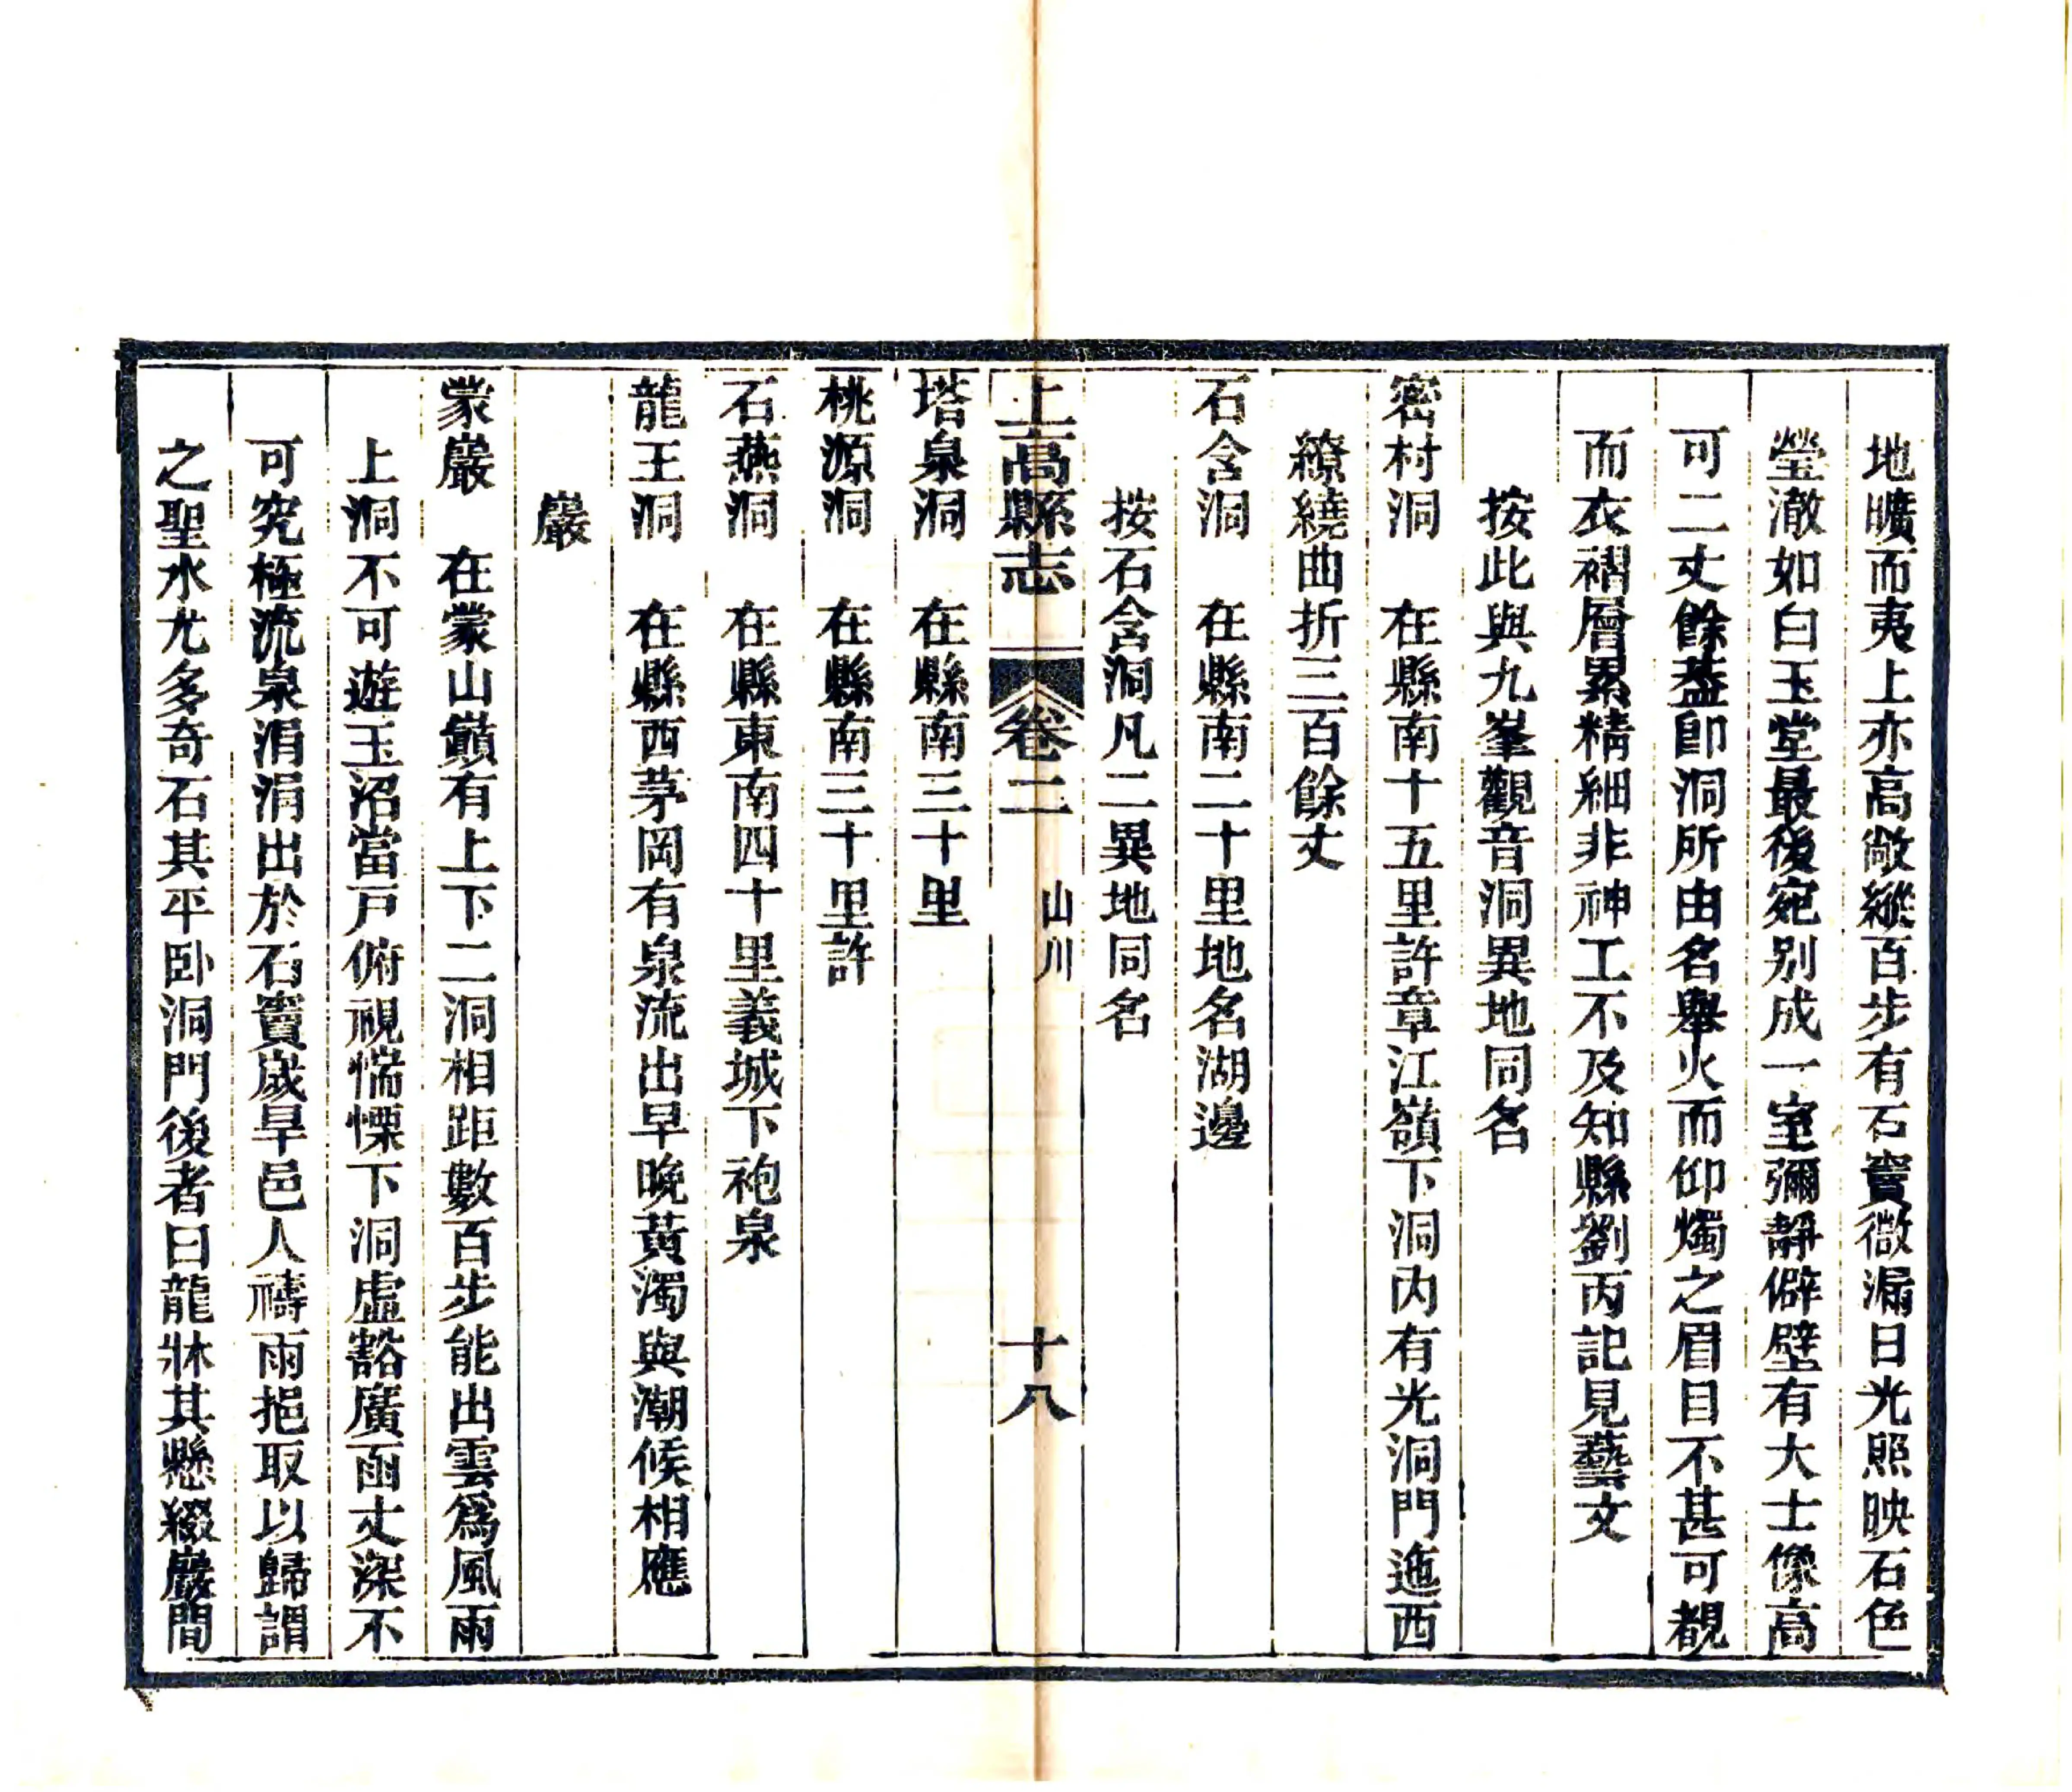 地曠而夷上亦高敞縱百步有石竇微漏日光照映石色
瑩澈如白玉堂最後宛别成一室彌靜僻壁有大士像高
可二丈餘蓋即洞所由名舉火而仰燭之眉目不甚可覩
而衣褶層累精細非神工不及知縣劉丙記見藝文
按此與九峯觀音洞異地同名
密村洞　在縣南十五里許章江嶺下洞内有光洞門迤西
繚繞曲折三百餘丈
石含洞　在縣南二十里地名湖邊
按石含洞凡二異地同名
上高縣志　卷二　山川　十八
塔泉洞　在縣南三十里
桃源洞　在縣南三十里許
石燕洞　在縣東南四十里義城下袍泉
龍王洞　在縣西茅岡有泉流出早晚黃濁與潮候相應
巖
蒙巖　在蒙山巔有上下二洞相距數百步能出雲爲風雨
上洞不可遊玉沼當戸俯視惴慄下洞虛豁廣面丈深不
可究極流泉涓涓出於石竇歲旱邑人禱雨挹取以歸謂
之聖水尤多奇石其平卧洞門後者曰龍牀其懸綴巖間